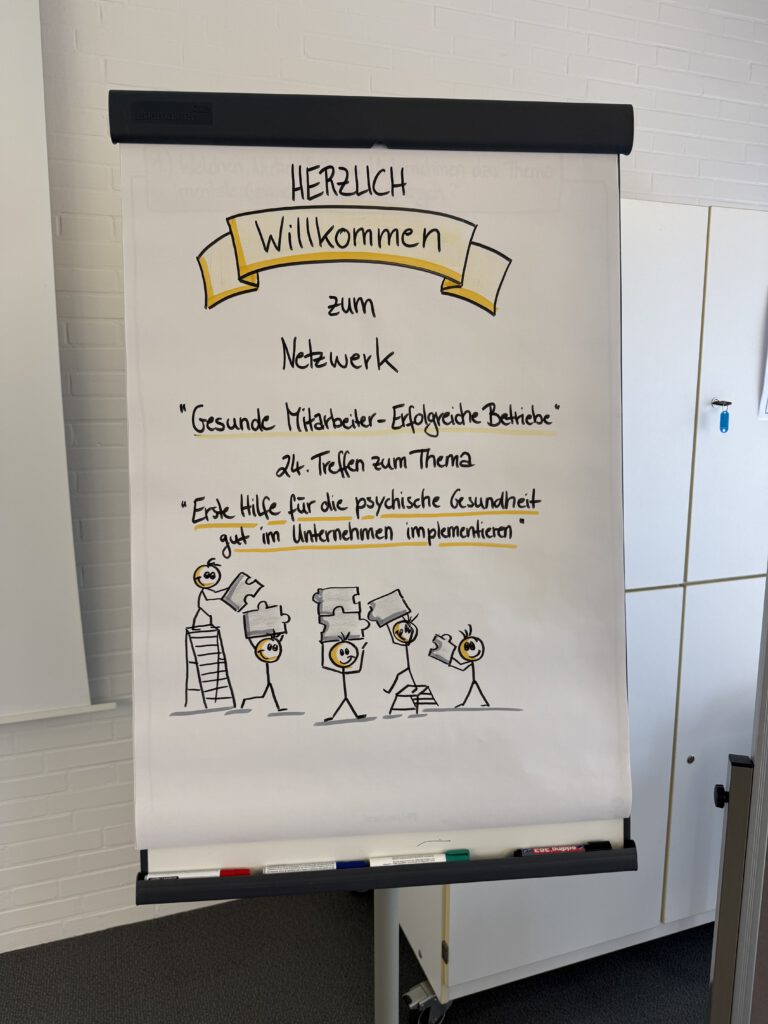 HERZLICH
Willkommen
zum
Netzwerk
"Gesunde Mitarbeiter - Erfolgreiche Betriebe"
24. Treffen zum Thema
"Erste Hilfe für die psychische Gesundheit
gut im Unternehmen implementieren"
edding 383